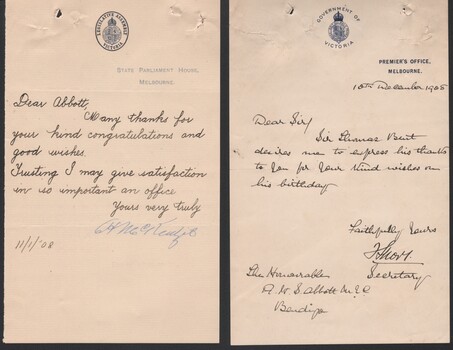 LEGISLATIVE ASSEMBLY
VICTORIA
STATE PARLIAMENT HOUSE,
MELBOURNE.
Dear Abbott,
Many thanks for
your kind congratulations and
good wishes.
Trusting I may give satisfaction
in so important an office
Yours very truly
11/1/08
GOVERNMENT OF
VICTORIA
PREMIER'S OFFICE,
MELBOURNE.
10th December 1905
Dear Sir/
Sir Thomas Bent
desires me to express his thanks
to you for your kind wishes on
his birthday
Faithfully Yours
Secretary
The Honourable
Abbott M.L.C
Bendigo